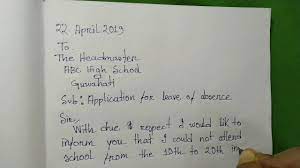 22 April 2019
To
The Headmaster
ABC High School
Guwahati
Sub: Application for leave of absence
Sir,
With due respect I would like to
inform you that I could not attend
school from the 10th to 20th